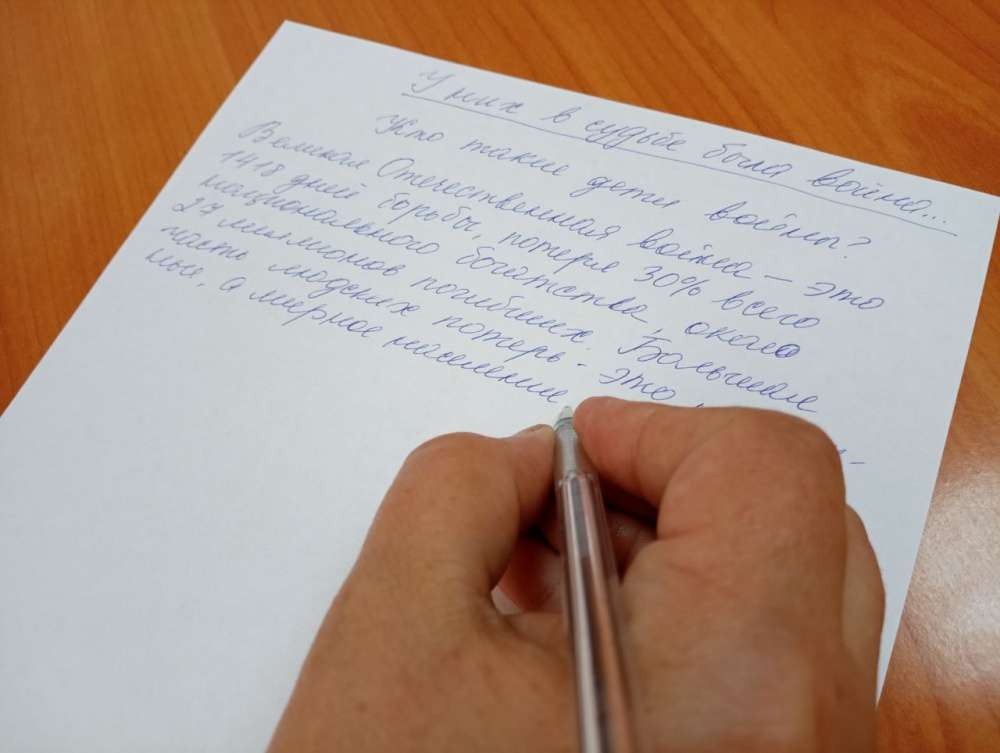 У них в судьбе была война...
Кто такие дети войны?
Великая Отечественная война – это
1418 дней борьбы, потеря 30% всего
национального богатства, около
27 миллионов погибших. Большая
часть людских потерь - это
ные, а мирное население